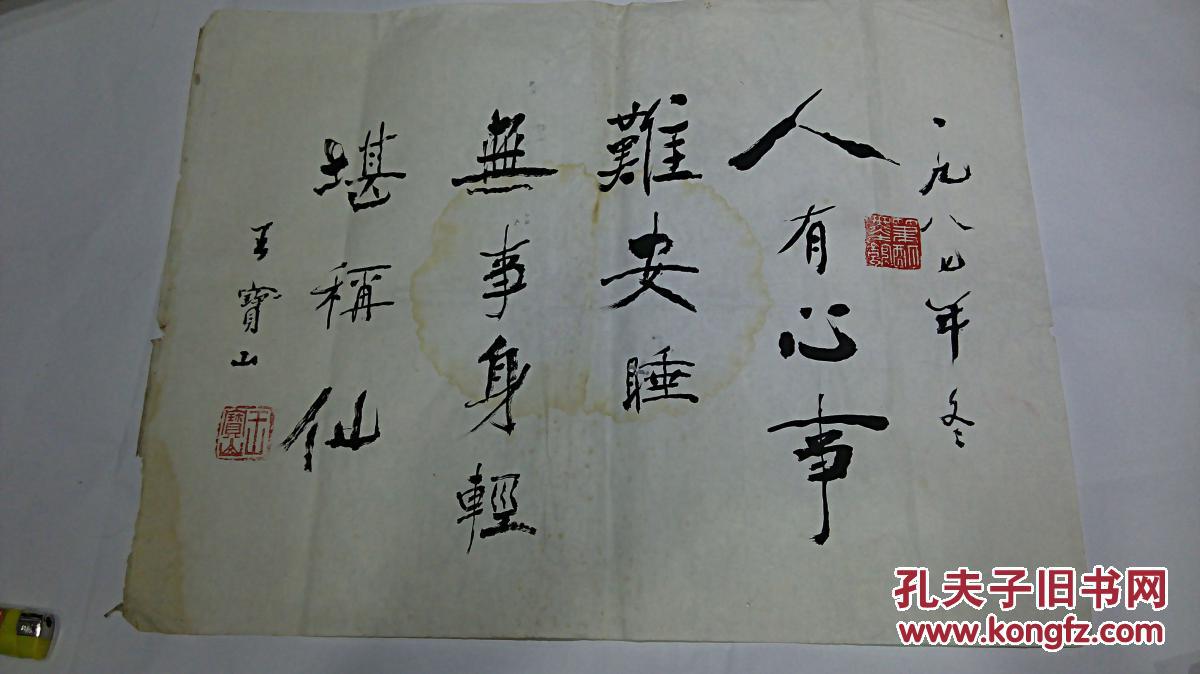 一九八七年冬
人有心事
難安睡
無事身輕
堪稱仙
王寶山
王寶山
孔夫子旧书网
www.kongfz.com